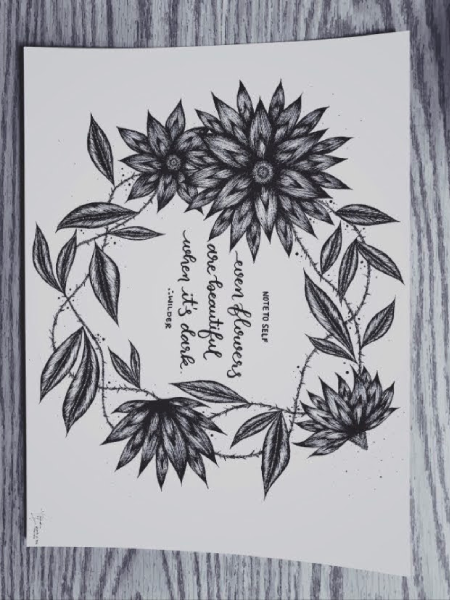 NOTE TO SELF
even flowers
are beautiful
when it's dark.
∴WILDER